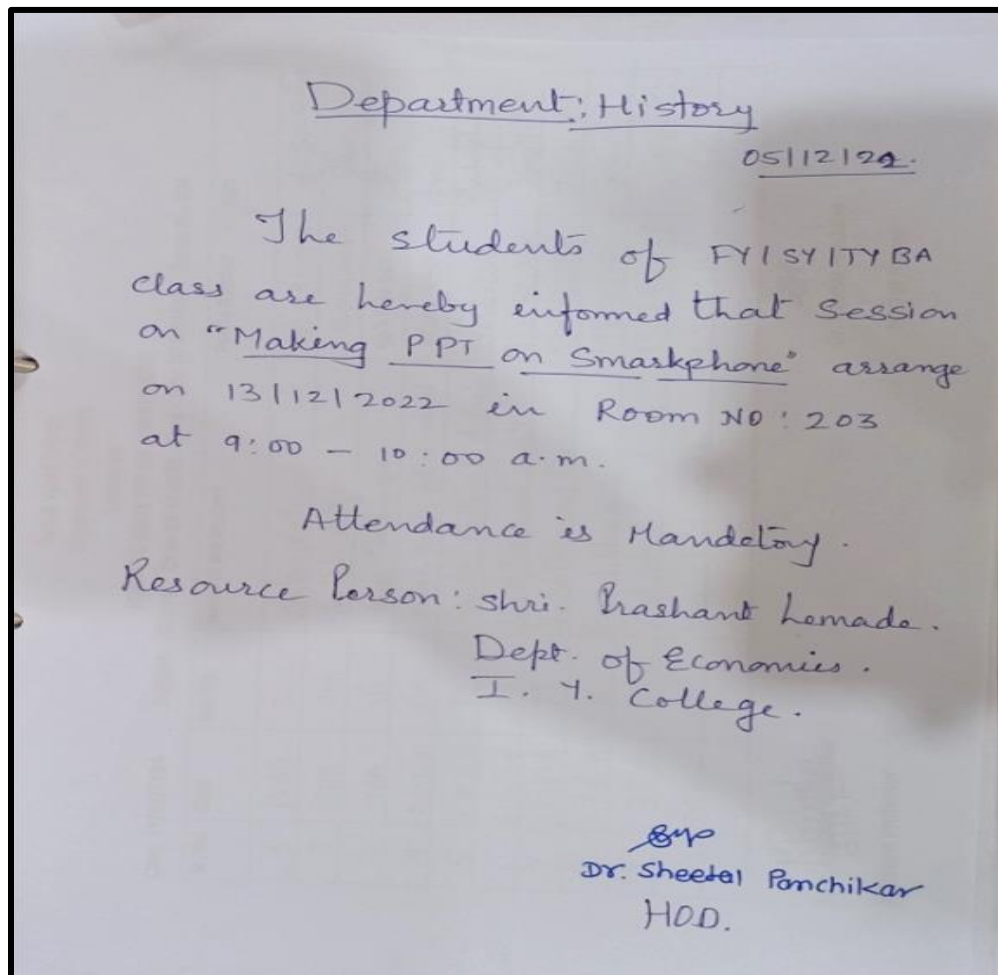 Department: History
05/12/22.
The students of FY/SY/TYBA
class are hereby informed that Session
on "Making PPT on Smaskphone" arrange
on 13/12/2022 in Room NO: 203
at 9:00 – 10:00 a.m.
Attendance is Mandetory.
Resource Person: Shri. Prashant Lomade.
Dept. of Economics.
I. Y. College.
Dr. Sheetal Panchikar
HOD.